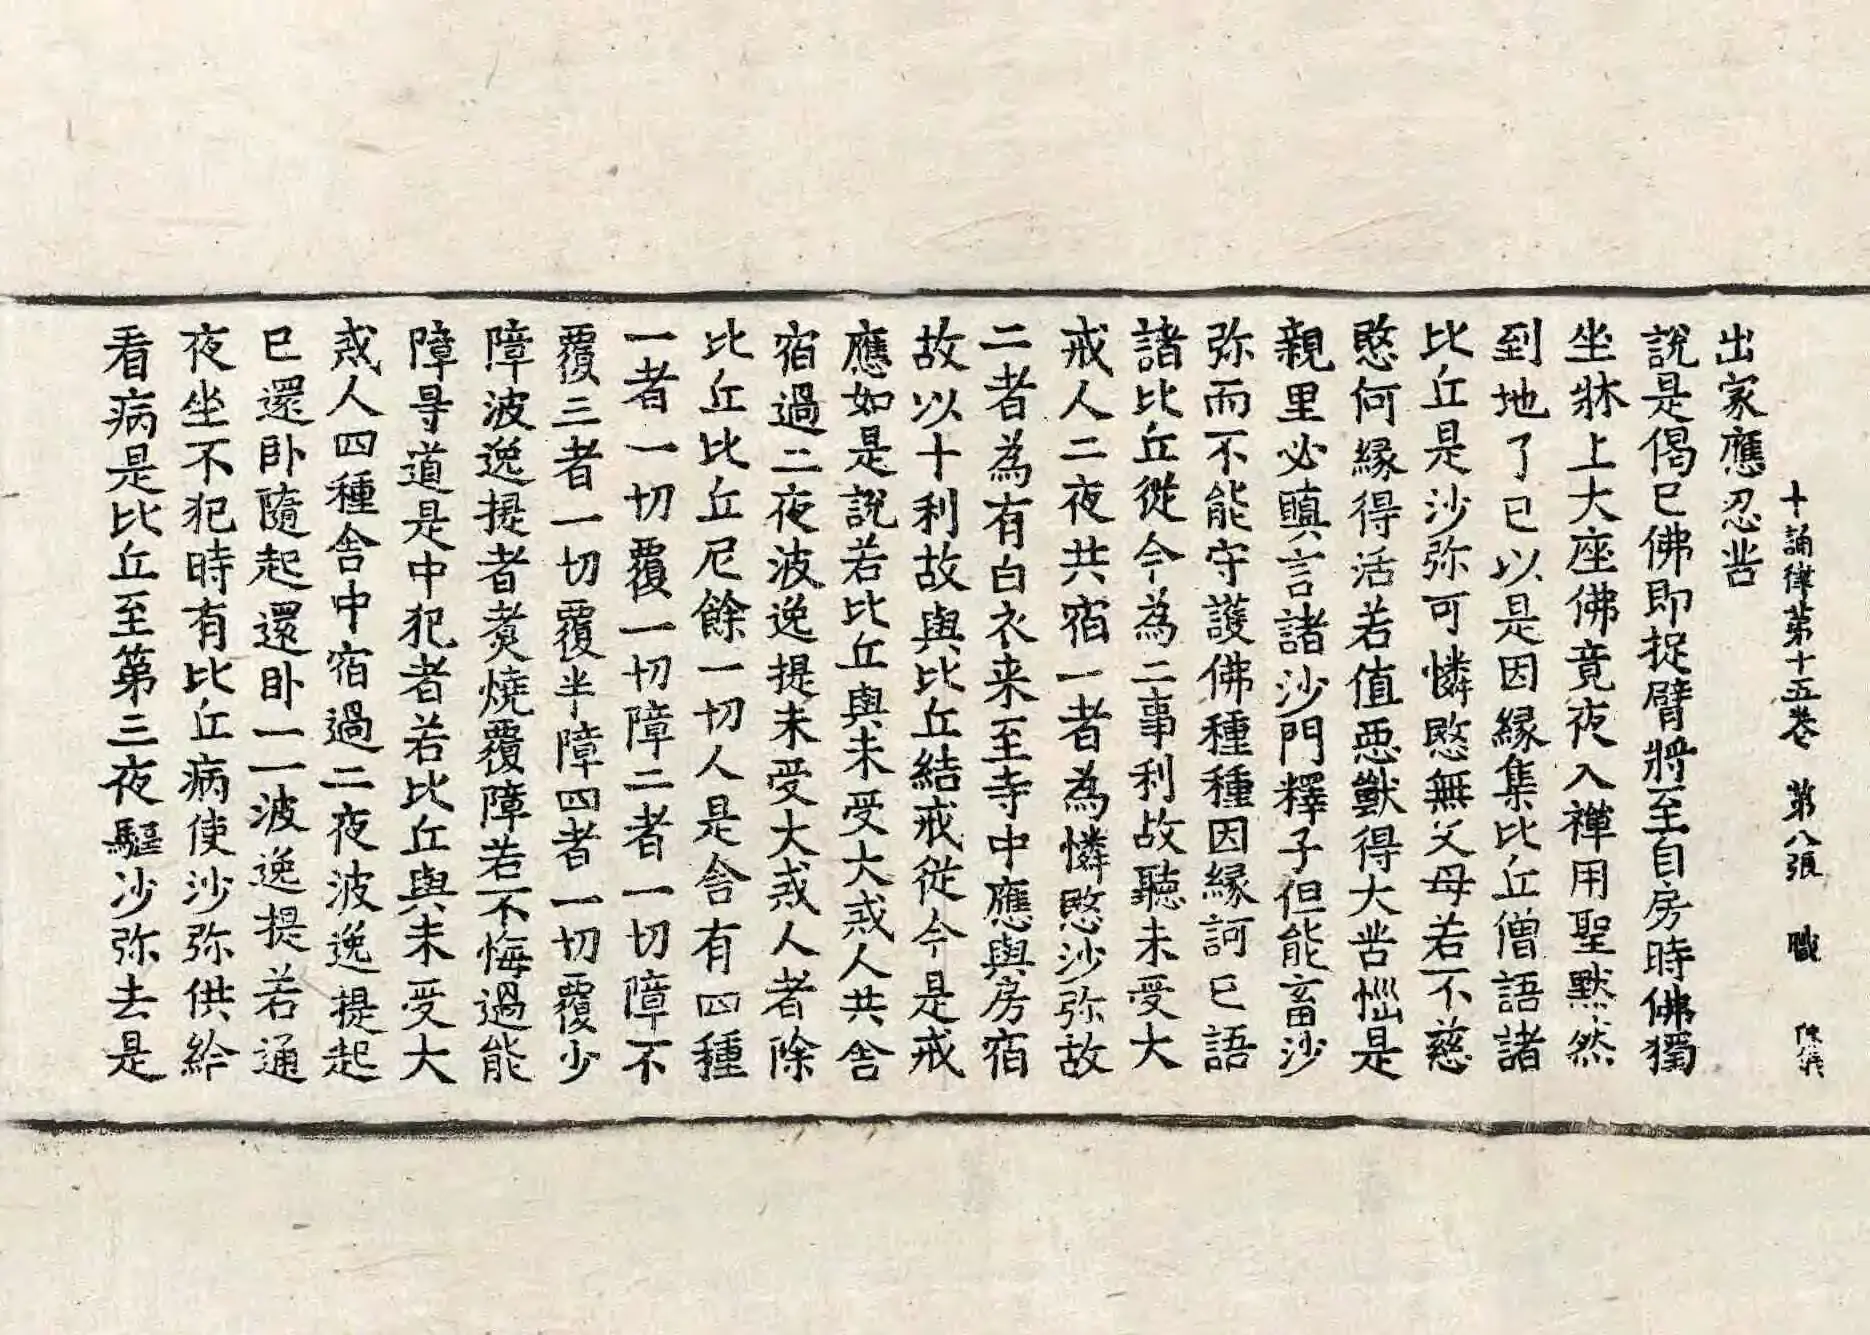 十誦律第十五卷 第八張 職
出家應忍苦
說是偈已佛即捉臂將至自房時佛獨
坐牀上大座佛竟夜入禪用聖默然
到地了已以是因緣集比丘僧語諸
比丘是沙弥可憐愍無父母若不慈
愍何緣得活若值惡獸得大苦惱是
親里必瞋言諸沙門釋子但能畜沙
弥而不能守護佛種種因緣訶已語
諸比丘從今為二事利故聽未受大
戒人二夜共宿一者為憐愍沙弥故
二者為有白衣来至寺中應與房宿
故以十利故與比丘結戒從今是戒
應如是說若比丘與未受大戒人共舍
宿過二夜波逸提未受大戒人者除
比丘比丘尼餘一切人是舍有四種
一者一切覆一切障二者一切障不
覆三者一切覆半障四者一切覆少
障波逸提者煑燒覆障若不悔過能
障㝵道是中犯者若比丘與未受大
戒人四種舍中宿過二夜波逸提起
已還卧隨起還卧一一波逸提若通
夜坐不犯時有比丘病使沙弥供給
看病是比丘至第三夜驅沙弥去是